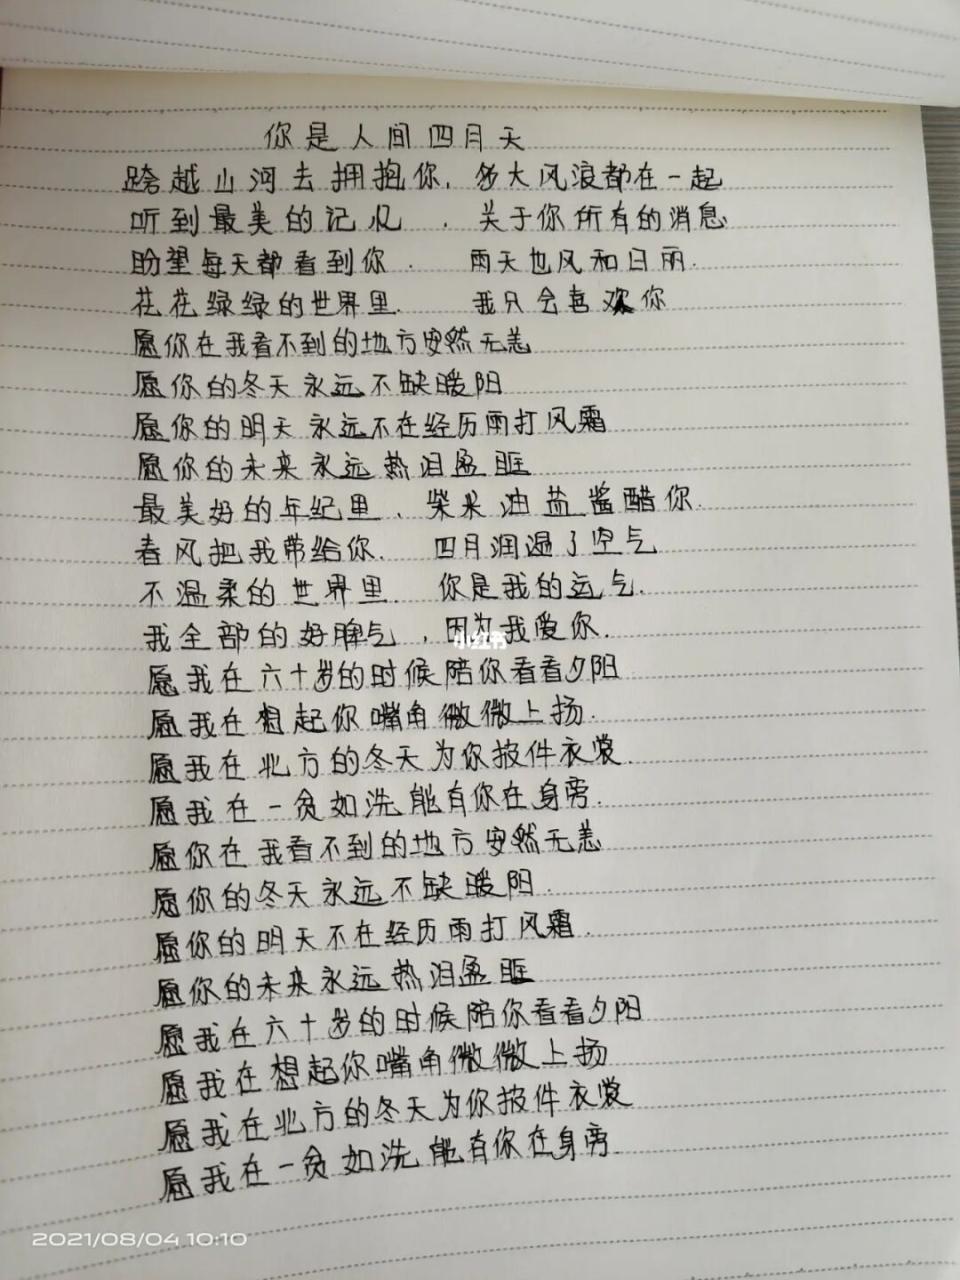 你是人间四月天
跨越山河去拥抱你，多大风浪都在一起
听到最美的记忆 ，关于你所有的消息
盼望每天都看到你． 雨天也风和日丽．
花花绿绿的世界里． 我只会喜欢你
愿你在我看不到的地方安然无恙
愿你的冬天永远不缺暖阳
愿你的明天永远不在经历雨打风霜
愿你的未来永远热泪盈眶
最美好的年纪里、柴米油盐酱醋你．
春风把我带给你． 四月润温了空气
不温柔的世界里． 你是我的运气．
我全部的好脾气 ，因为我爱你．
愿我在六十岁的时候陪你看看夕阳
愿我在想起你嘴角微微上扬．
愿我在北方的冬天为你披件衣裳．
愿我在一贫如洗能有你在身旁．
愿你在我看不到的地方安然无恙
愿你的冬天永远不缺暖阳．
愿你的明天不在经历雨打风霜．
愿你的未来永远热泪盈眶
愿我在六十岁的时候陪你看看夕阳
愿我在想起你嘴角微微上扬
愿我在北方的冬天为你披件衣裳
愿我在一贫如洗能有你在身旁．
小红书
2021/08/04 10:10